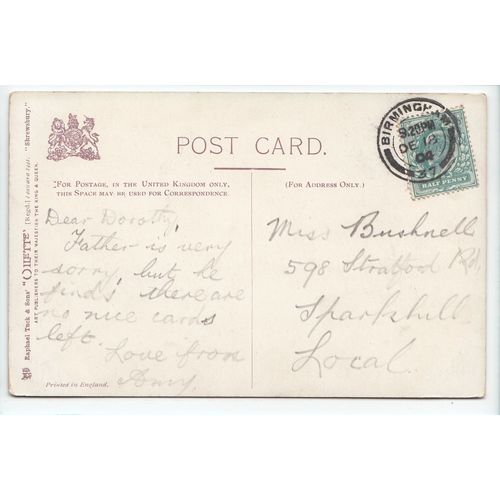 POST CARD.
BIRMINGHAM
9.20PM
DE 19
04
37
HALF PENNY
FOR POSTAGE, IN THE UNITED KINGDOM ONLY,
THIS SPACE MAY BE USED FOR CORRESPONDENCE.
(FOR ADDRESS ONLY.)
Dear Dorothy,
Father is very
sorry, but he
find's there are
no nice cards
left.
Love from
Amy.
Miss Bushnell
598 Stratford Rd,
Sparkhill
Local.
Printed in England.
Raphael Tuck & Sons' "OILETTE" [Regd.] Postcard "Shrewsbury."
ART PUBLISHERS TO THEIR MAJESTIES THE KING & QUEEN.